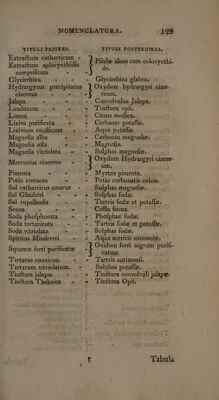 NOMENCLATURA. 129
TITULI PRIORES. TITULI POSTERIORES.
Extractum catharticum - } Pilulæ aloes cum colocynthi-
Extractum colocynthidis compositum - } de.
Glycirrhiza - - Glycirrhiza glabra.
Hydrargyrus præcipitatus cinereus - } Oxydum hydrargyri cinereum.
Jalapa - - Convolvulus Jalapa.
Laudanum - - Tinctura opii.
Limon - - Citrus medica.
Lixiva purificata - Carbonas potassæ.
Lixivium causticum - Aqua potassæ.
Magnesia alba - Carbonas magnesiæ.
Magnesia usta - Magnesia.
Magnesia vitriolata - Sulphas magnesiæ.
Mercurius cinereus - } Oxydum Hydrargyri cinereum.
Pimenta - - Myrtus pimenta.
Potio cretacea - Potio carbonatis calcis.
Sal catharticus amarus - Sulphas magnesiæ.
Sal Glauberi - Sulphas sodæ.
Sal rupellensis - Tartris sodæ et potassæ.
Senna - - Cassia senna.
Soda phosphorata - Phosphas sodæ.
Soda tartarizata - Tartris sodæ et potassæ.
Soda vitriolata - Sulphas sodæ.
Spiritus Mindereri - Aqua acetitis ammoniæ.
Squamæ ferri purificatæ } Oxidum ferri nigrum purificatum.
Tartarus emeticus. - Tartris antimonii.
Tartarum vitriolatum. - Sulphas potassæ.
Tinctura jalapæ - - Tinctura convolvuli jalapæ.
Tinctura Thebaica - - Tinctura Opii.
Tabula